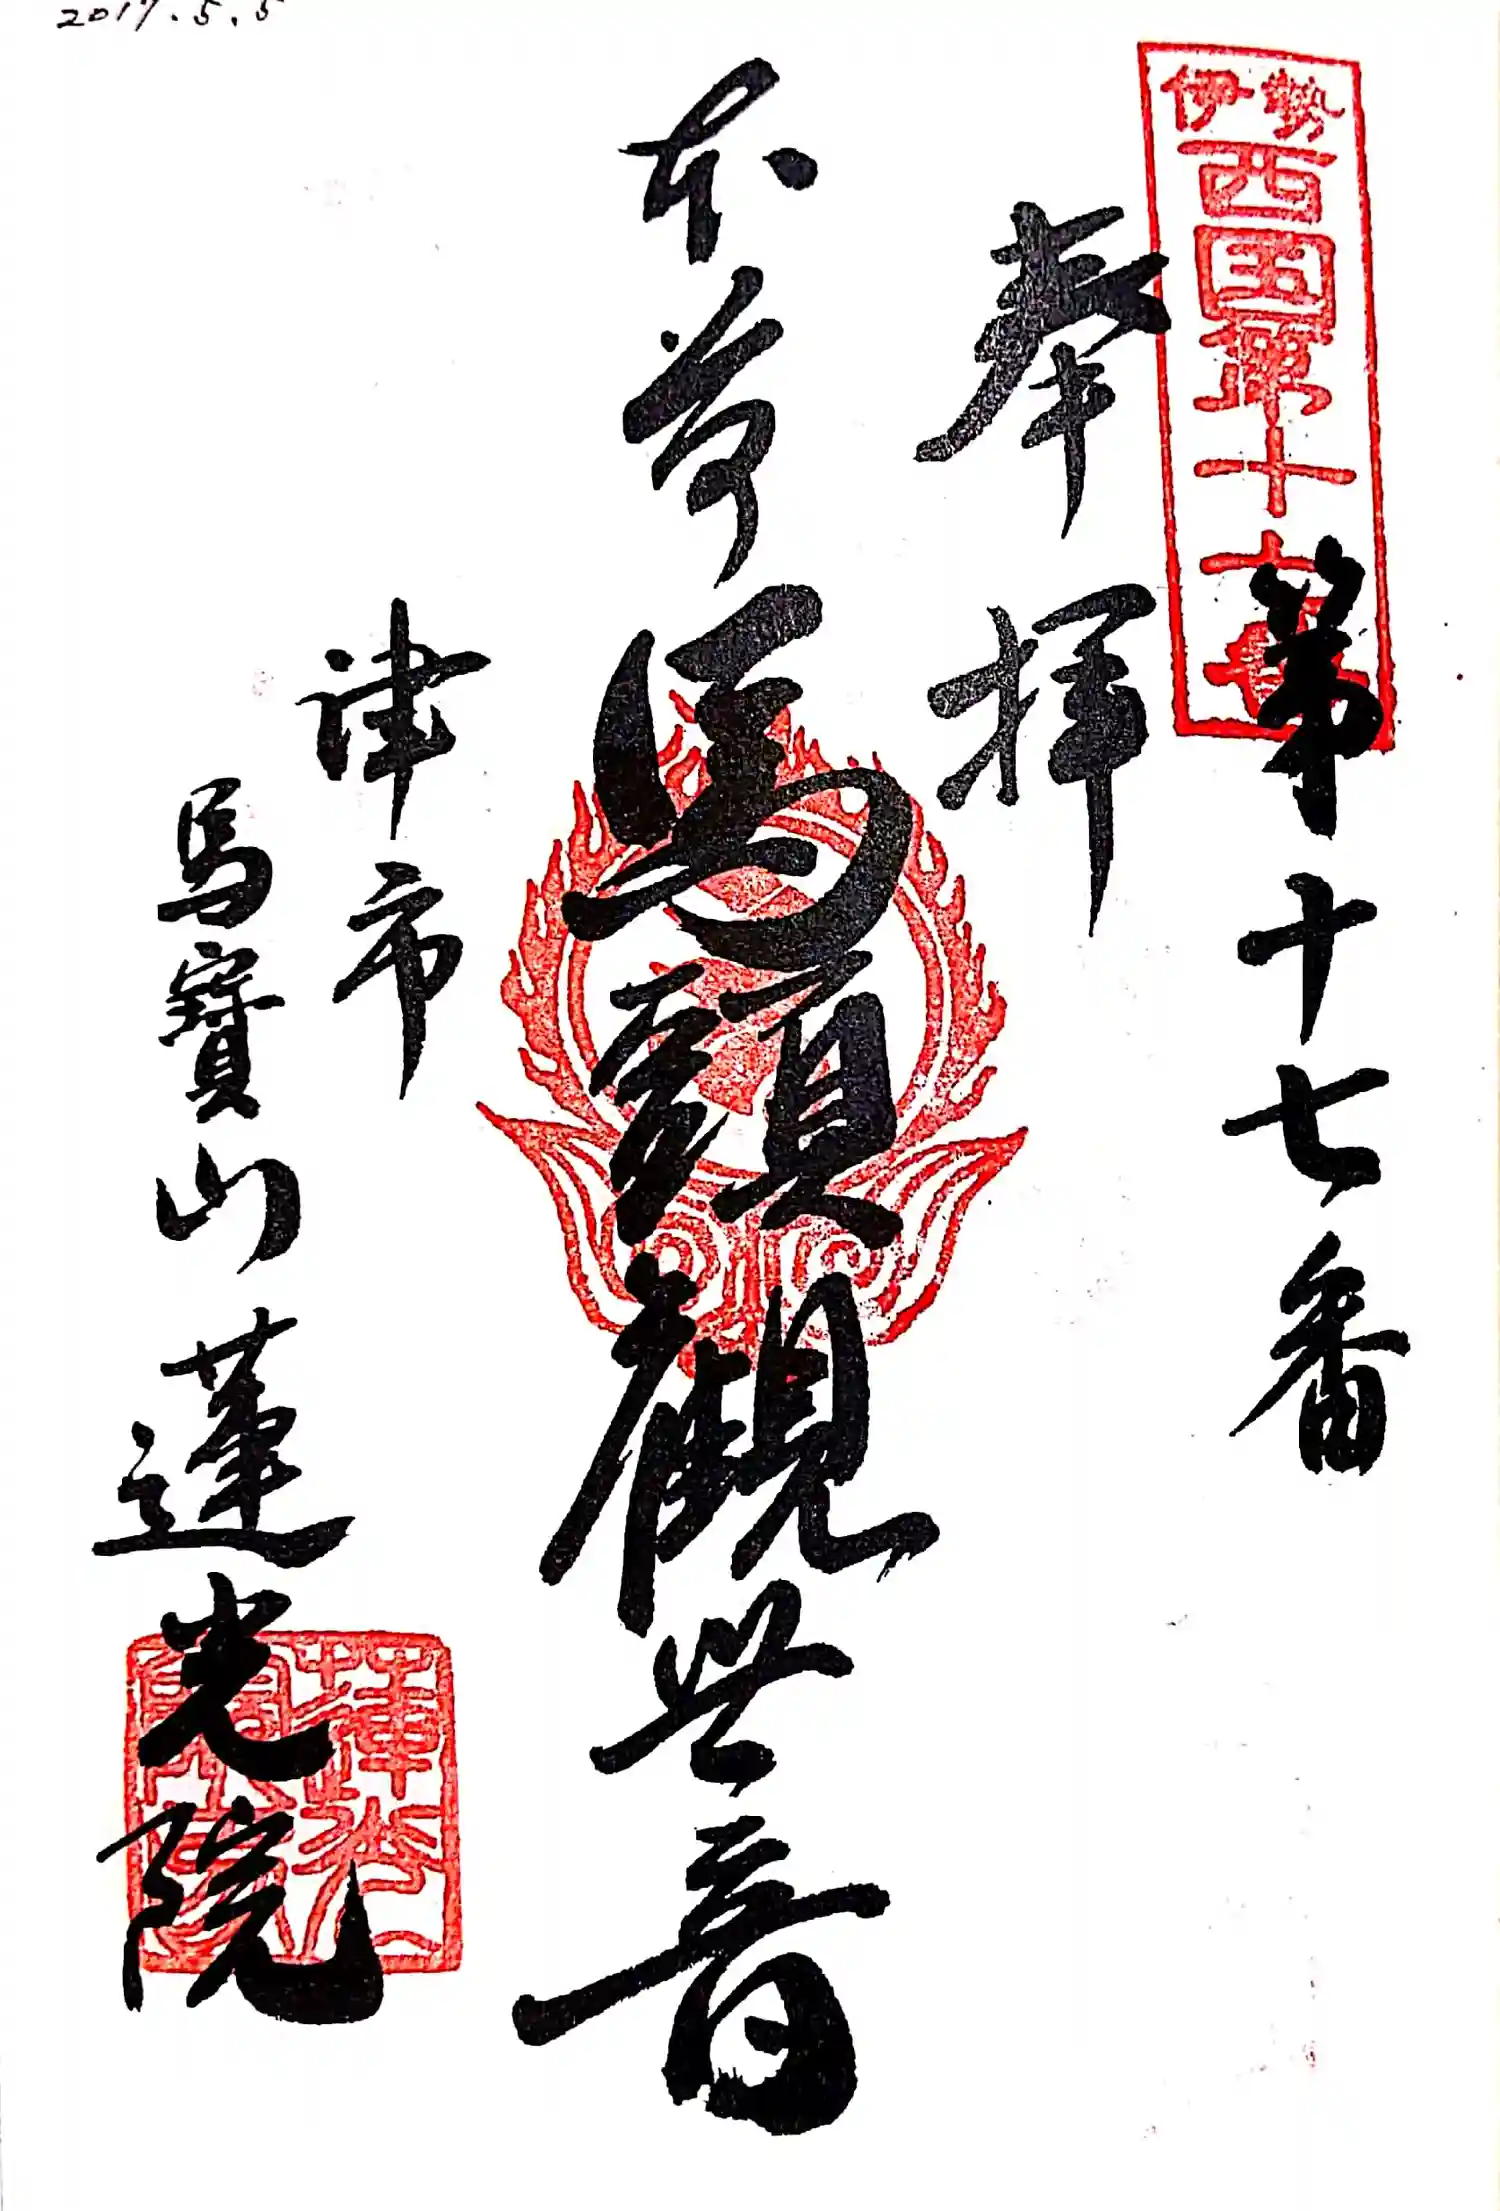 2017.5.5
伊勢
西国第十七番
第十七番
奉拝
本尊
馬頭觀世音
津市
馬寶山
蓮光院